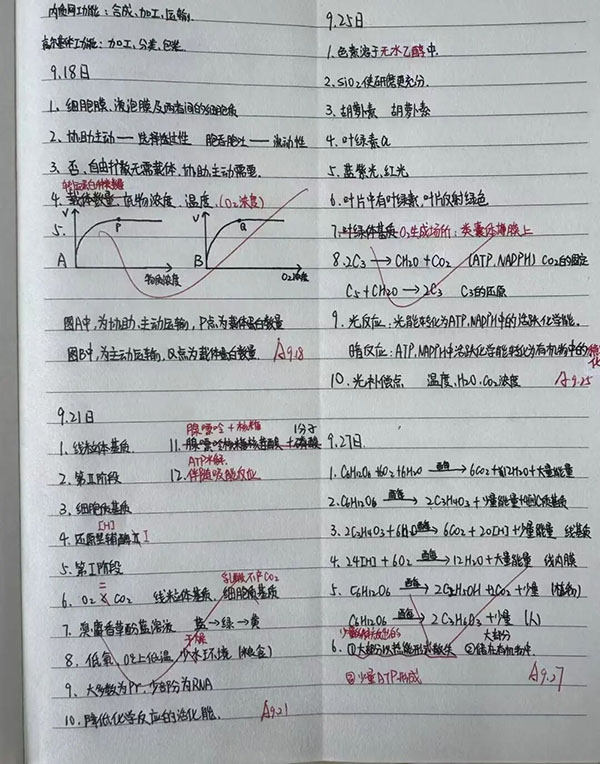 内质网功能：合成、加工、运输.
高尔基体功能：加工、分类、包装
9.18日
1、细胞膜、液泡膜及两者间的细胞质
2、协助主动——选择透过性 胞吞胞吐——流动性
3、否，自由扩散无需载体，协助.主动需要.
转运蛋白种类数量
4、载体数量、底物浓度、温度、(O₂浓度)
5.
V
P
A
物质浓度
V
Q
B
O₂浓度
图A中，为协助、主动运输，P点为载体蛋白数量
图B中，为主动运输，Q点为载体蛋白数量.
A 9.18
9.21日
1、线粒体基质.
2、第Ⅲ阶段
3、细胞质基质
[H]
4、还原型辅酶Ⅰ
5、第Ⅰ阶段
6、O₂ CO₂ 线粒体基质、细胞质基质
乳酸不产CO₂
7、溴麝香草酚蓝溶液 蓝→绿→黄
干燥
8、低氧、0℃上低温 少水环境 (粮食)
9、大多数为Pr.少部分为RNA
10、降低化学反应的活化能.
A 9.21
腺嘌呤+核糖 1分子
11、+磷酸
ATP水解.
12、伴随吸能反应
9.25日
1.色素溶于无水乙醇中.
2.SiO₂使研磨更充分.
3.胡萝卜素 胡萝卜素
4.叶绿素a
5.蓝紫光,红光
6.叶片中有叶绿素,叶片反射绿色
7.叶绿体基质 O₂生成场所：类囊体薄膜上
8.2C₃ → CH₂O + CO₂ (ATP、NADPH) CO₂的固定
C₅ + CH₂O → 2C₃ C₃的还原
9.光反应：光能转化为ATP、NADPH中的活跃化学能.
暗反应：ATP、NADPH中活跃化学能转化为有机物中的稳化
10.光补偿点 温度、H₂O、CO₂浓度
A 9.25
9.27日.
1.C₆H₁₂O₆+6O₂+6H₂O 酶 → 6CO₂+12H₂O+大量能量
2.C₆H₁₂O₆ 酶 → 2C₃H₄O₃+少量能量 基质
3.2C₃H₄O₃+6H₂O 酶 → 6CO₂+20[H]+少量能量 线基质
4.24[H]+6O₂ 酶 → 12H₂O+大量能量 线内膜
5.C₆H₁₂O₆ 酶 → 2C₂H₅OH+2CO₂+少量 (植物)
C₆H₁₂O₆ 酶 → 2C₃H₆O₃+少量 (人)
大部分
6.①大部分以热能形式散失 ②储存在有机物中.
③少量ATP形成
A 9.27